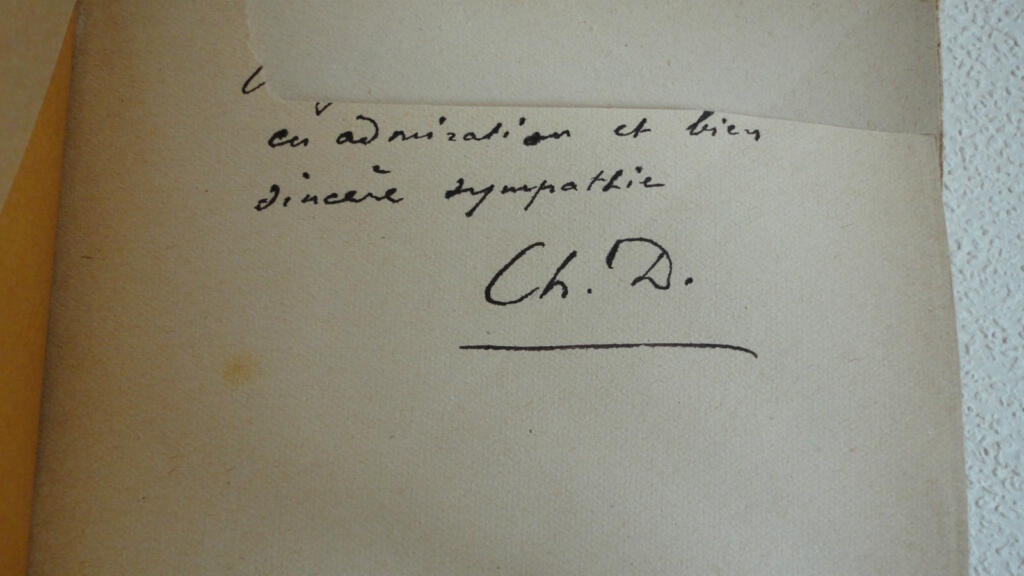 en admiration et bien
sincère sympathie
Ch. D.